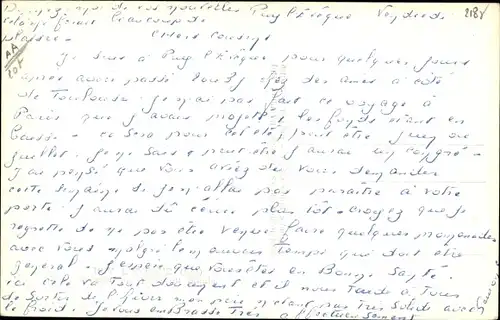 Donnez-moi de vos nouvelles Puy l'Evêque Vendredi 2184
cela me ferait beaucoup de
plaisir - Chers cousins
AA
Je suis à Puy l'Evêque pour quelques jours
après avoir passé lundi chez des amis à côté
de Toulouse. Je n'ai pas fait ce voyage à
Paris que j'avais projeté les fonds étant en
baisse - ce sera pour cet été peut être Juin ou
Juillet. Je ne sais peut être j'aurai un congrès -
J'ai pensé que vous aviez dû vous demander
cette semaine de je n'allais pas paraître à votre
porte. J'aurais dû écrire plus tôt - croyez que je
regrette de ne pas être venue faire quelques promenades
avec vous malgré le mauvais temps qui doit être
général. J'espère que vous êtes en Bonne Santé.
ici cela va tout doucement et il nous tarde à tous
de sortir de l'hiver mon père n'étant pas très solide avec
le froid. Je vous embrasse très affectueusement